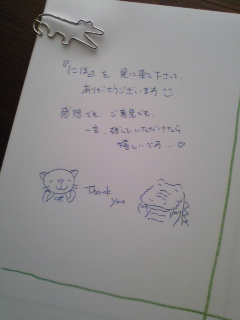 『にほ』を 見に来て下さって、
ありがとうございます
感想でも、ご意見でも、
一言、残していただけたら
嬉しいです…♡
Thank
you